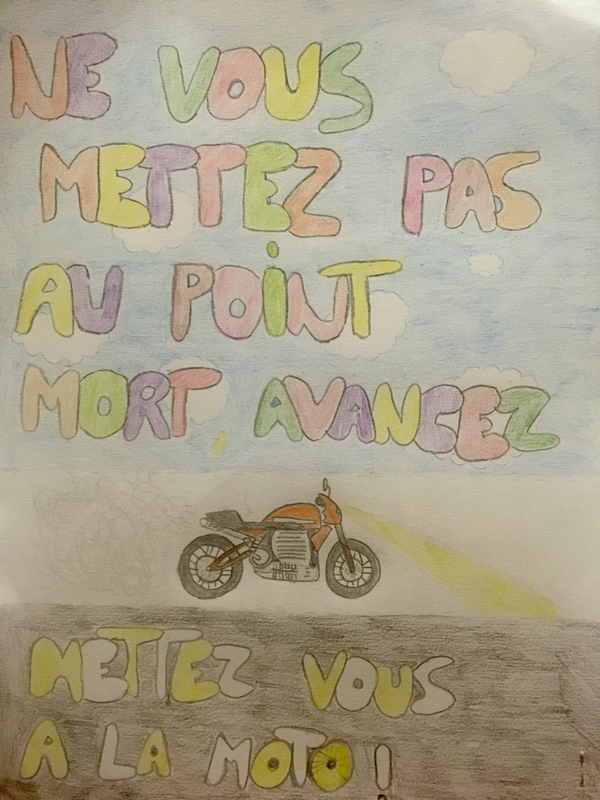 NE VOUS
METTEZ PAS
AU POINT
MORT, AVANCEZ
METTEZ VOUS
A LA MOTO !